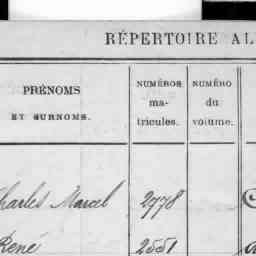 RÉPERTOIRE AL
PRÉNOMS
ET SURNOMS.
NUMÉROS
ma-
tricules.
NUMÉRO
du
volume.
Charles Marcel 2778
René 2551